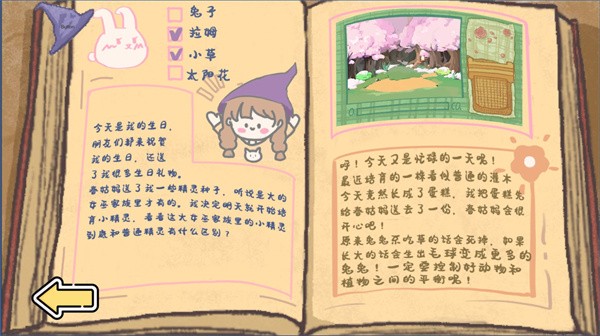 兔子
拉姆
小草
太阳花
今天是我的生日，
朋友们都来祝贺
我的生日，还送
了我很多生日礼物。
春姑妈送了我一些精灵种子，听说是大的
女巫家族里才有的。我决定明天就开始培
育小精灵，看看这大女巫家族里的小精灵
到底和普通精灵有什么区别？
呼！今天又是忙碌的一天呢！
最近培育的一棵看似普通的灌木
今天竟然长成了蛋糕，我把蛋糕先
给春姑妈送去了一份，春姑妈会很
开心吧！
原来兔兔不吃草的话会死掉，如果
长大的话会生出毛球变成更多的
兔兔！一定要控制好动物和
植物之间的平衡呢！